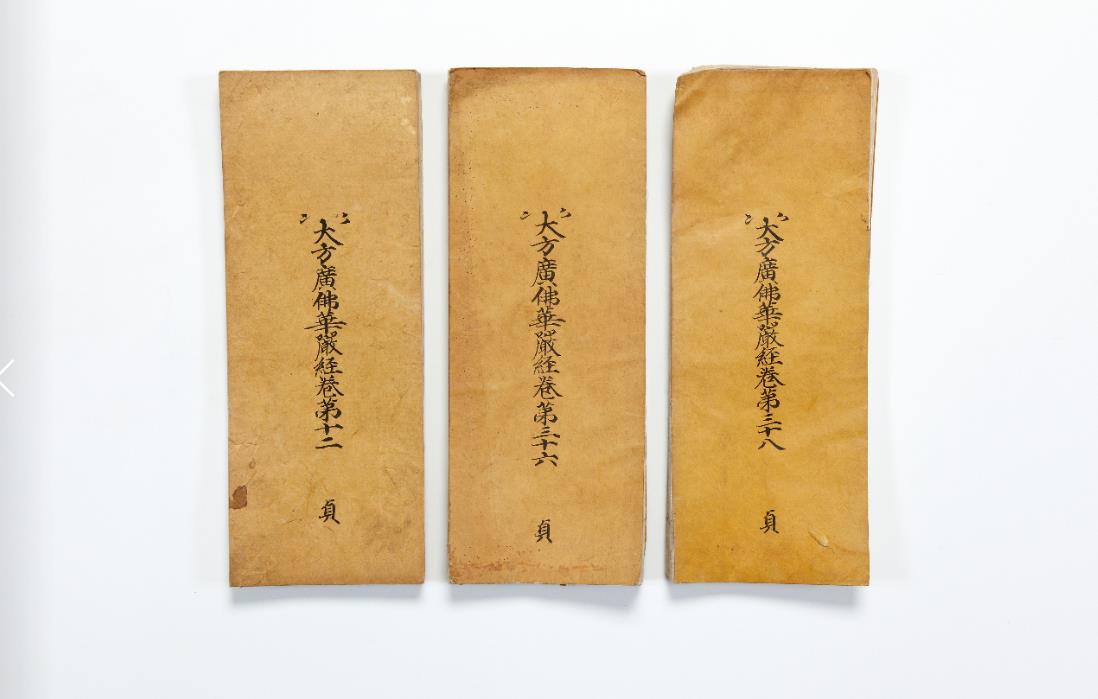 大方廣佛華嚴経卷第十二
貞
大方廣佛華嚴経卷第三十六
貞
大方廣佛華嚴経卷第三十八
貞